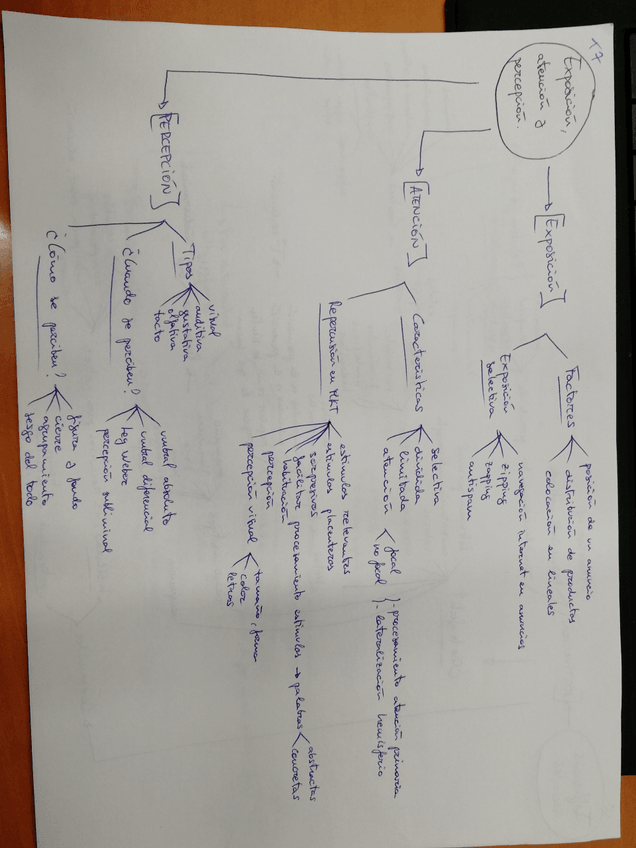 T7
Exposición,
atención y
percepción.
[EXPOSICIÓN]
Factores
posición de un anuncio
distribución de productos
colocación en lineales
Exposición
selectiva
navegación internet en anuncios
zipping
zapping
antispam
[ATENCIÓN]
Características
selectiva
dividida
limitada
atención
focal
no focal
}-procesamiento atención primaria
}-lateralización hemisferio
Repercusión en MKT
estímulos relevantes
estímulos placenteros
sorpresivos
facilitar procesamiento estímulos → palabras
abstractas
concretas
percepción
percepción visual
tamaño y forma
color
letras
[PERCEPCIÓN]
Tipos
visual
auditiva
gustativa
olfativa
tacto
¿Cuando se perciben?
umbral absoluto
umbral diferencial
ley Weber
percepción subliminal
¿Cómo se perciben?
figura y fondo
cierre
agrupamiento
sesgo del todo